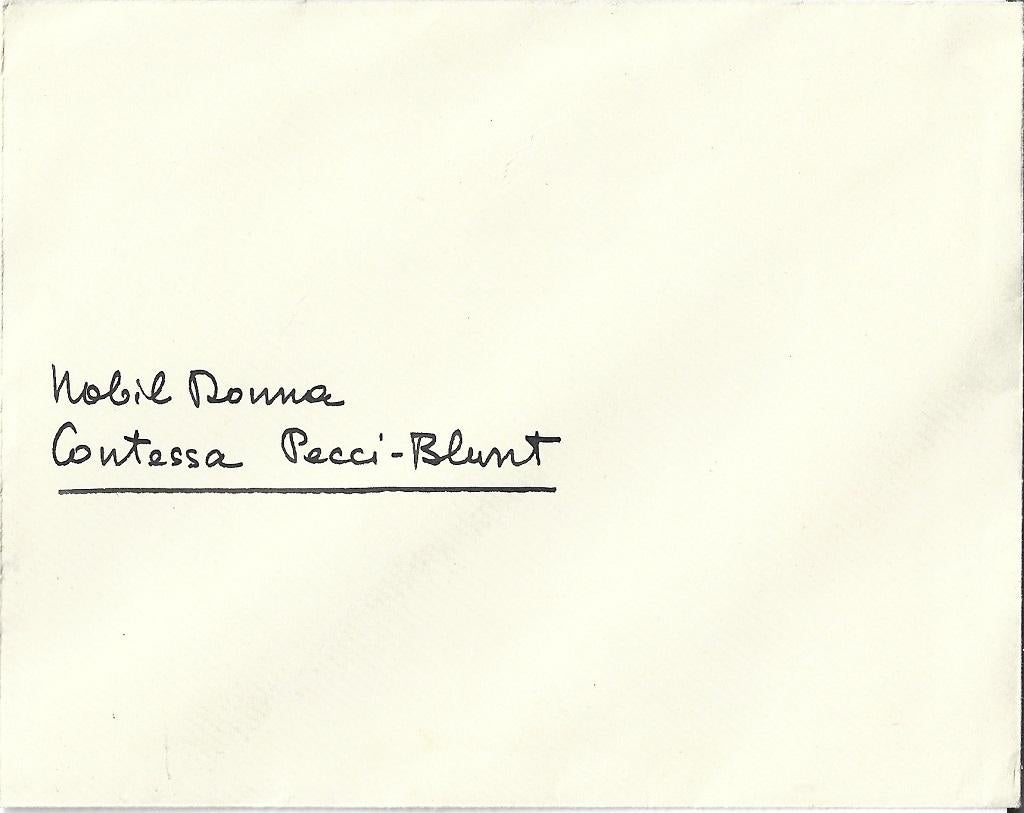 Nobil Donna
Contessa Pecci-Blunt